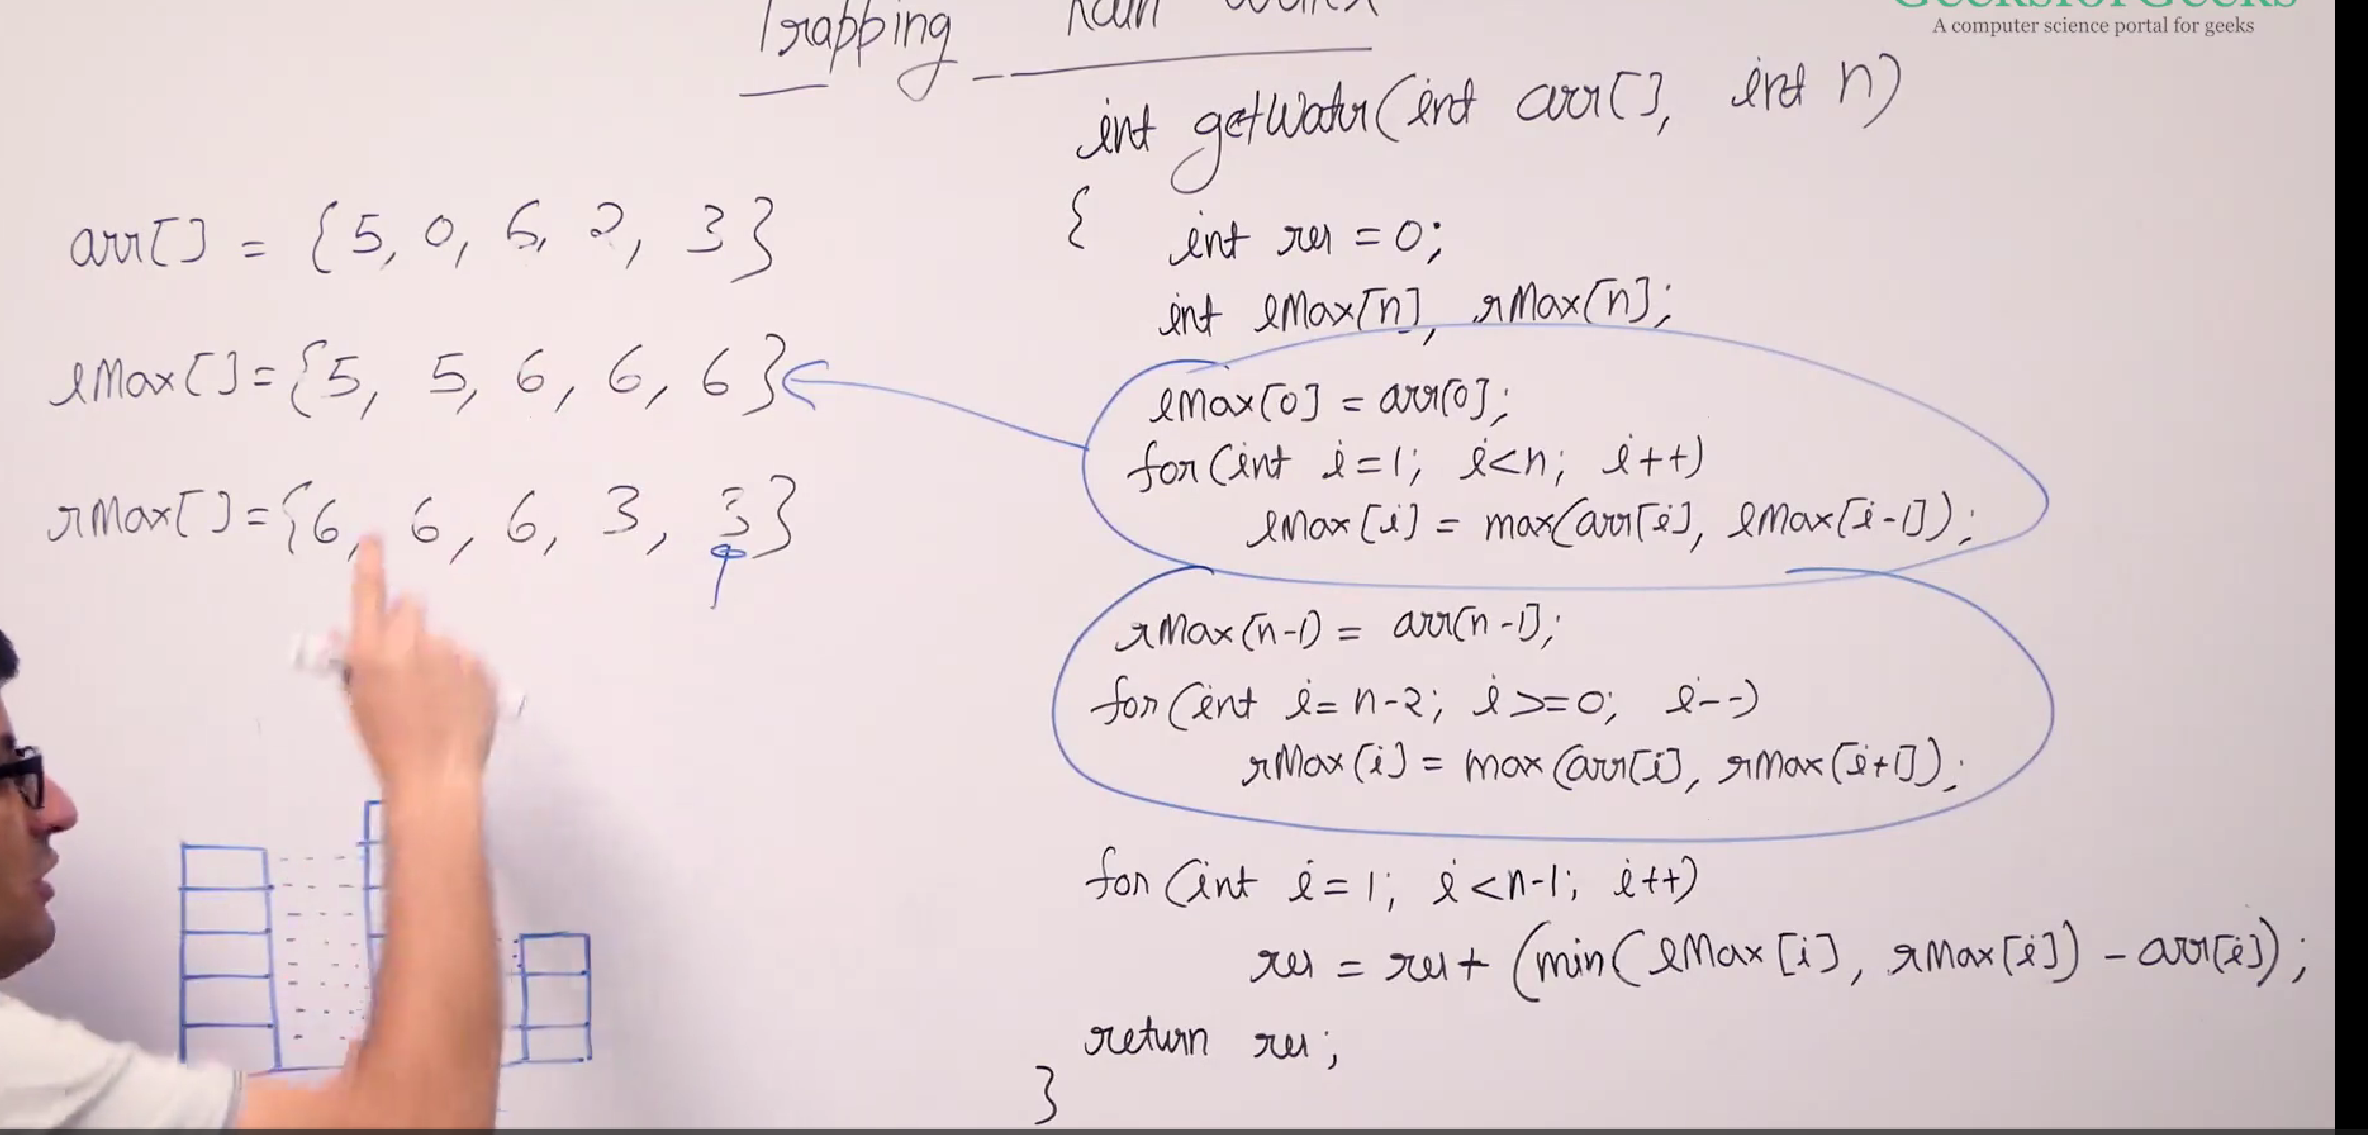 Trapping Rain Water
GeeksforGeeks
A computer science portal for geeks
arr[] = {5, 0, 6, 2, 3}
lMax[]={5, 5, 6, 6, 6}
rMax[]={6, 6, 6, 3, 3}
int getWater(int arr[], int n)
{ int res = 0;
int lMax[n], rMax[n];
lMax[0] = arr[0];
for(int i=1; i<n; i++)
lMax[i] = max(arr[i], lMax[i-1]);
rMax[n-1] = arr[n-1];
for(int i=n-2; i>=0; i--)
rMax[i] = max(arr[i], rMax[i+1]);
for(int i=1; i<n-1; i++)
res = res+ (min(lMax[i], rMax[i]) - arr[i]);
return res;
}